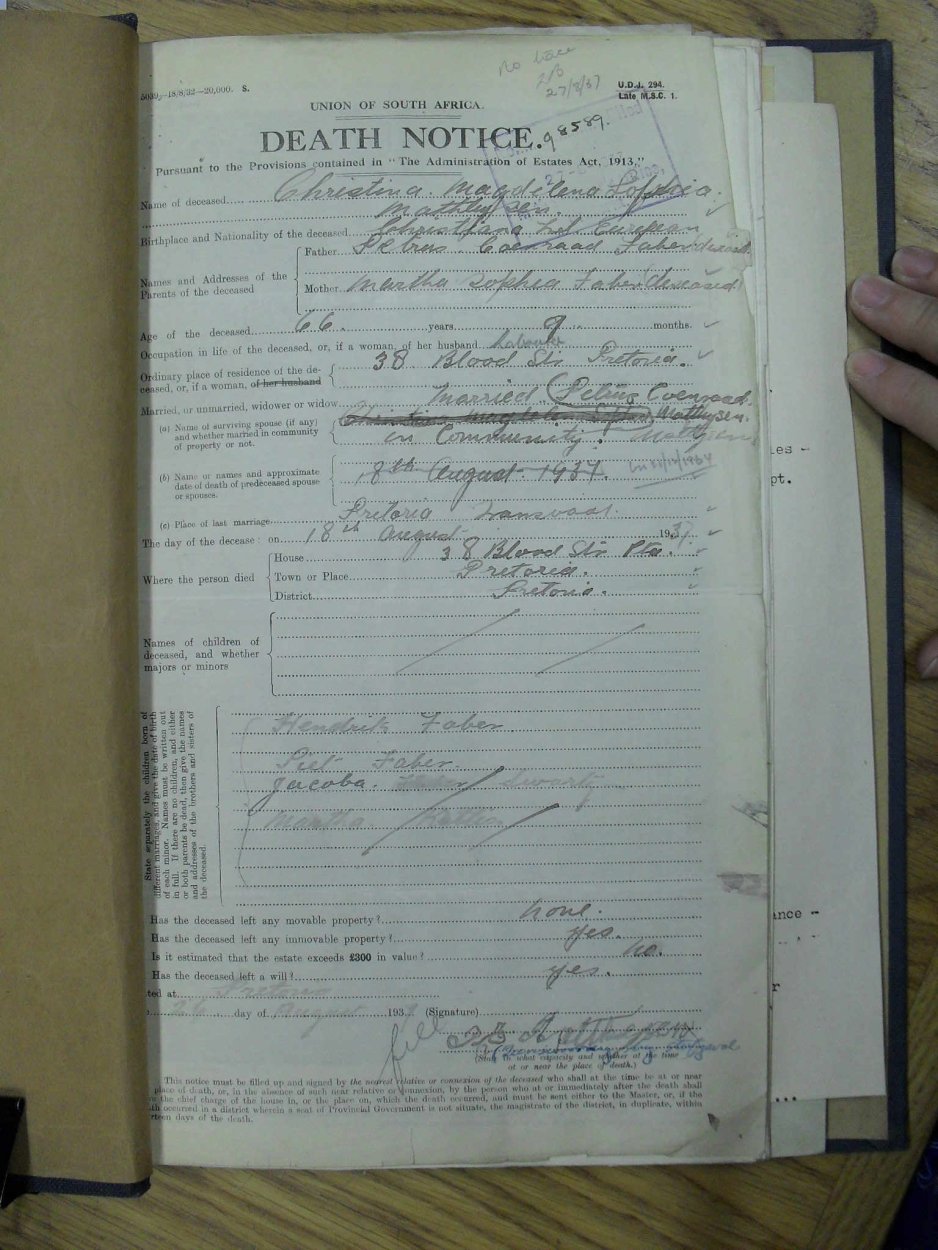 No trace
27/8/37
5039—18/8/32—20,000. S.
U.D.J. 294.
Late M.S.C. 1.
UNION OF SOUTH AFRICA.
DEATH NOTICE. 98589.
Pursuant to the Provisions contained in "The Administration of Estates Act, 1913."
Name of deceased Christina Magdelena Sophia
Birthplace and Nationality of the deceased Christiana European
Names and Addresses of the Parents of the deceased
Father Petrus Coenraad Faber deceased
Mother Martha Sophia Faber deceased
Age of the deceased 66 years 9 months.
Occupation in life of the deceased, or, if a woman, of her husband Labourer
Ordinary place of residence of the deceased, or, if a woman, of her husband
38 Blood Str Pretoria.
Married, or unmarried, widower or widow Married Petrus Coenraad
(a) Name of surviving spouse (if any) and whether married in community of property or not.
Matthysen.
in Community.
(b) Name or names and approximate date of death of predeceased spouse or spouses.
18th August 1937.
(c) Place of last marriage Pretoria Transvaal.
The day of the decease: on 18th August 1937
Where the person died
House 38 Blood Str Pta.
Town or Place Pretoria.
District Pretoria.
Names of children of deceased, and whether majors or minors
State separately the children born of different marriages, and give the date of birth of each minor. Names must be written out in full. If there are no children, and either or both parents be dead, then give the names and addresses of the brothers and sisters of the deceased.
Hendrik Faber
Piet Faber
Jacoba Swartz
Martha
Has the deceased left any movable property? none.
Has the deceased left any immovable property? yes.
Is it estimated that the estate exceeds £300 in value? no.
Has the deceased left a will? yes.
ted at Pretoria
26 day of August 1937 (Signature)
(State in what capacity and whether at the time at or near the place of death.)
This notice must be filled up and signed by the nearest relative or connexion of the deceased who shall at the time be at or near
place of death, or, in the absence of such near relative or connexion, by the person who at or immediately after the death shall
the chief charge of the house in, or the place on, which the death occurred, and must be sent either to the Master, or, if the
th occurred in a district wherein a seat of Provincial Government is not situate, the magistrate of the district, in duplicate, within
rteen days of the death.